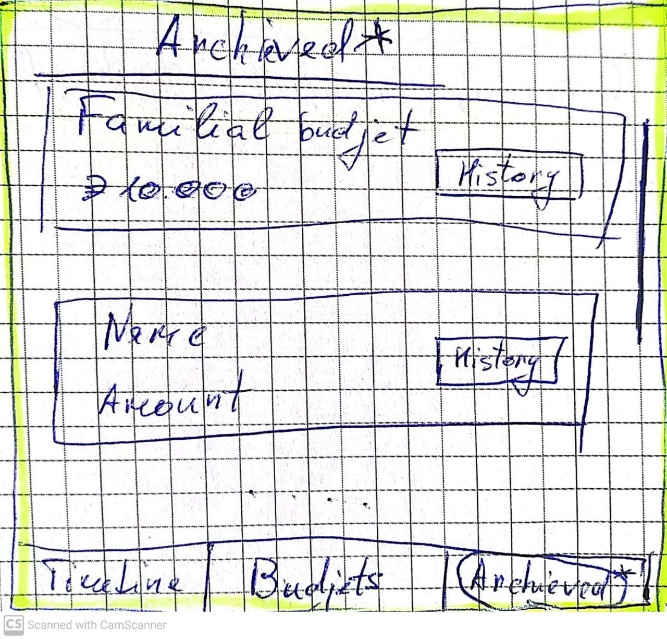 Archieved*
Familial budjet
10.000
History
Name
History
Amount
Timeline
Budjets
Archieved*
CS Scanned with CamScanner